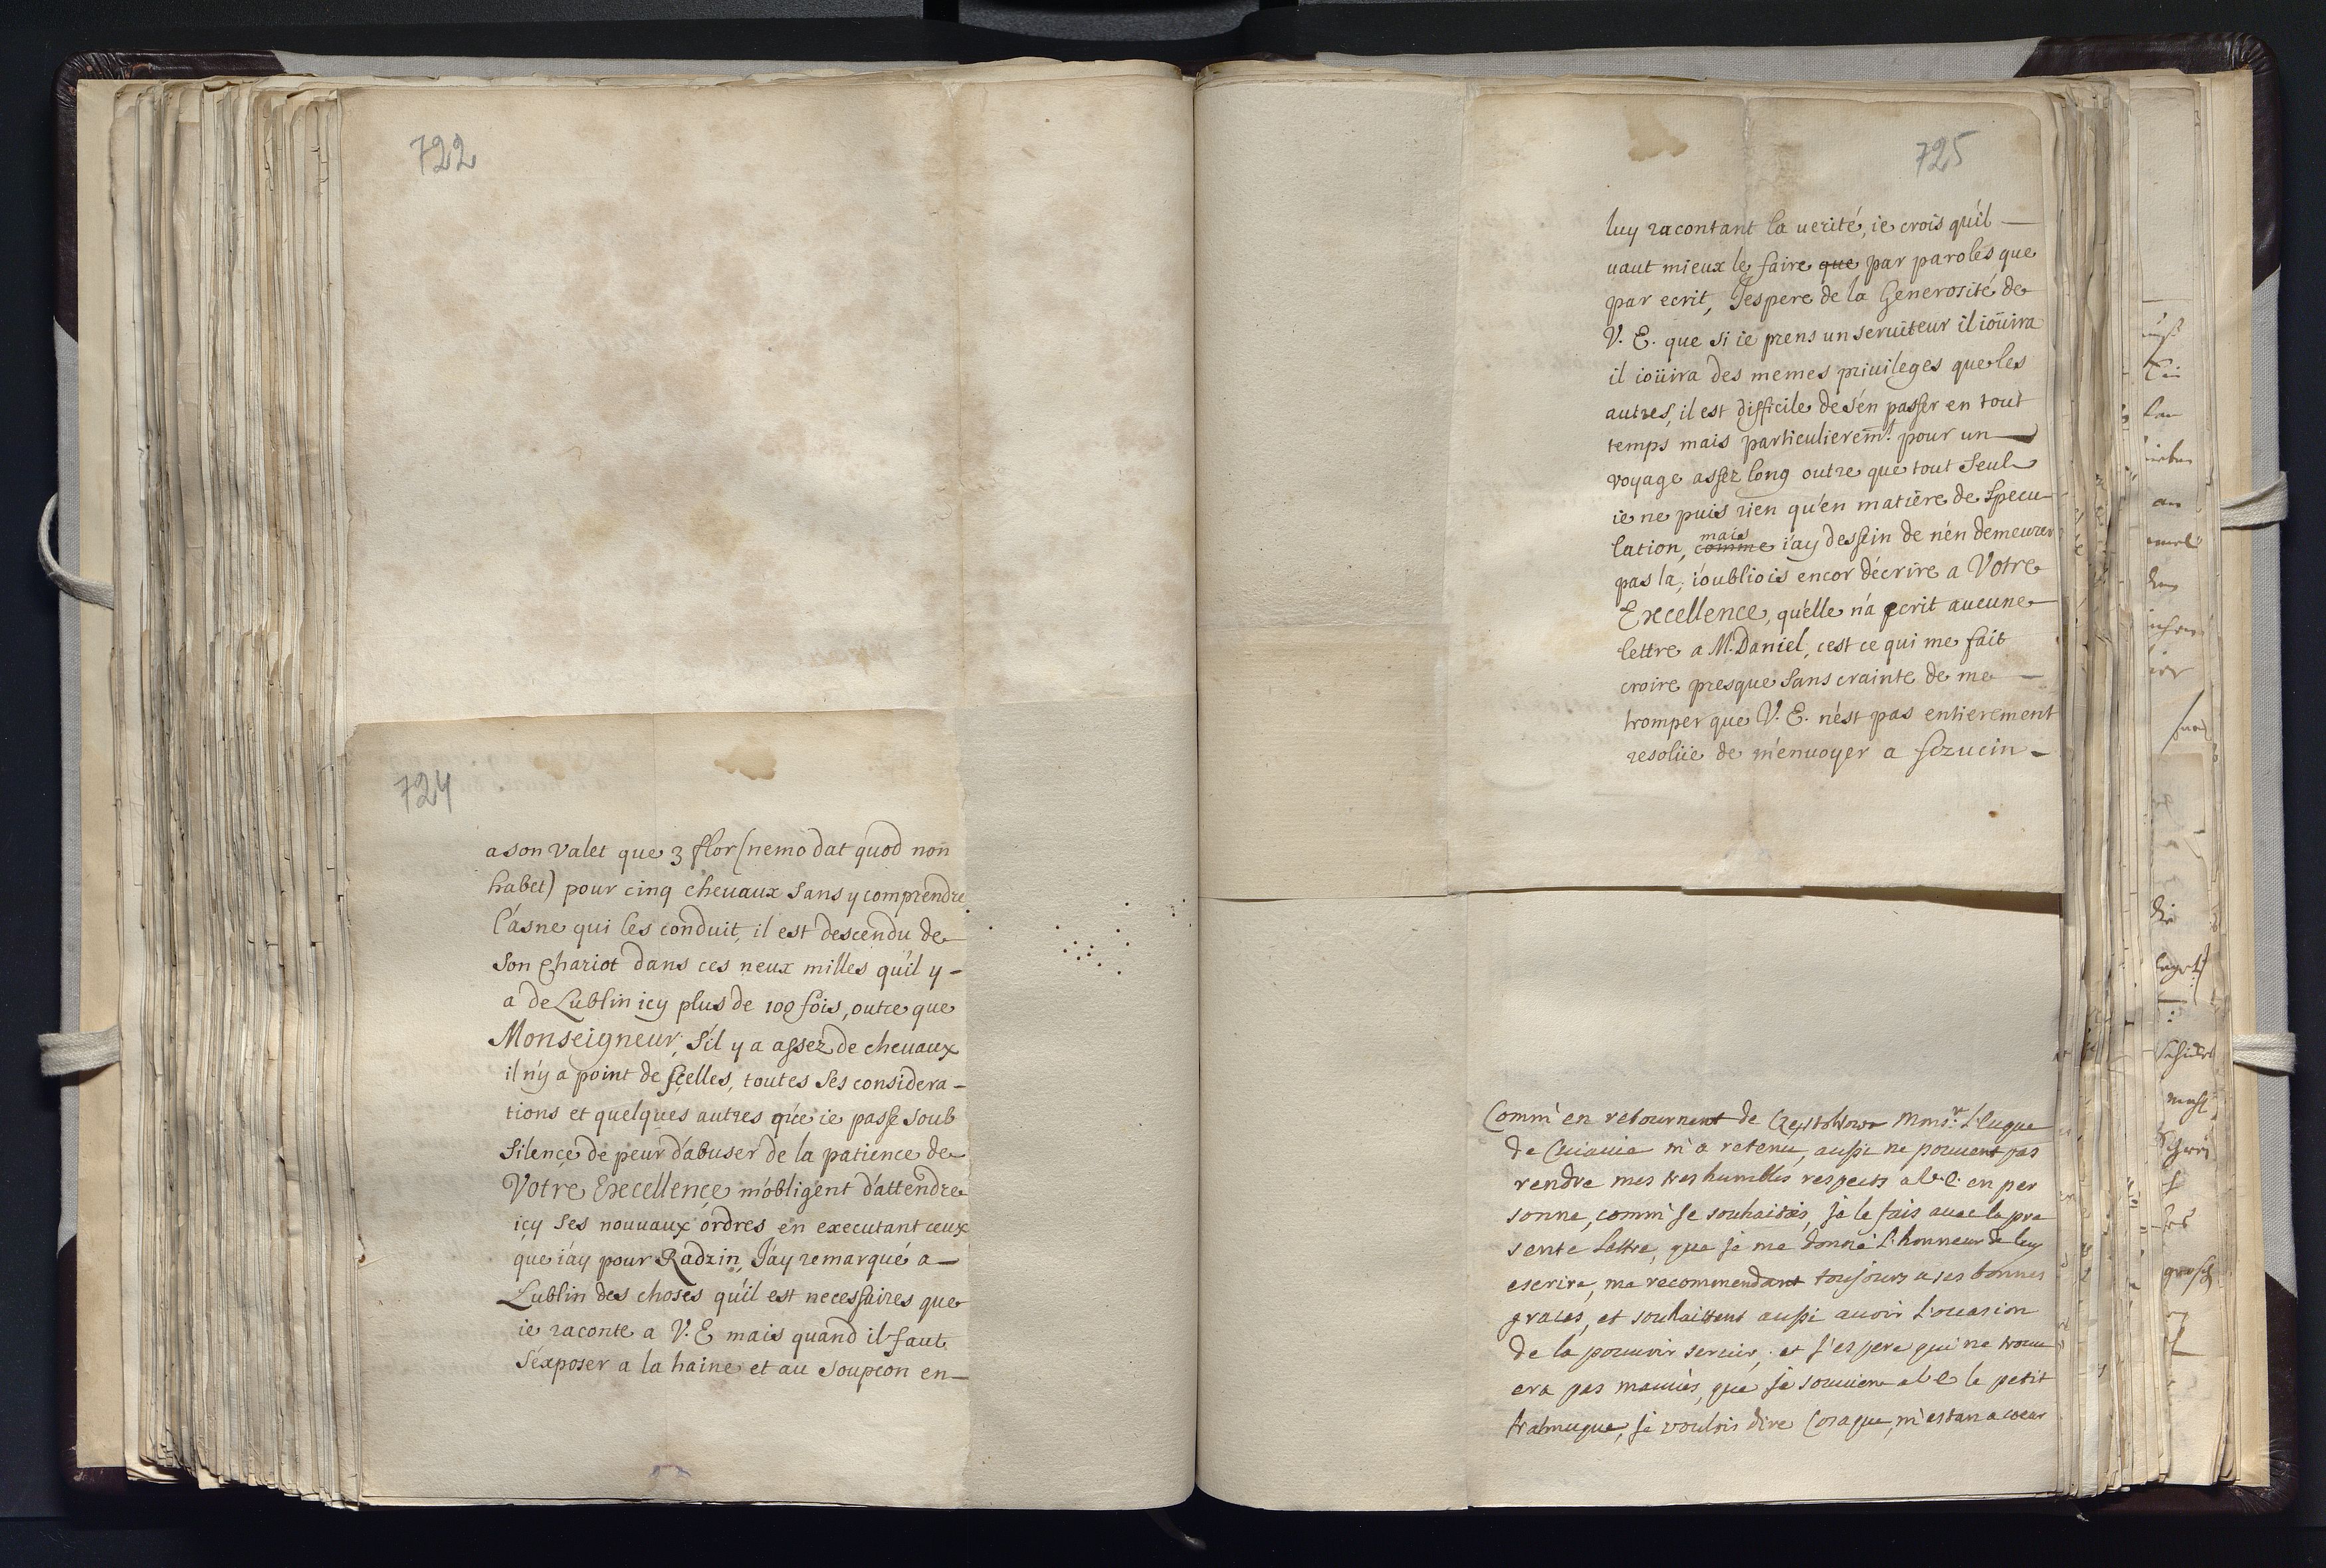 722
724
a son valet que 3 flor (nemo dat quod non
habet) pour cinq cheuaux sans y comprendre
l'ásne qui les conduit, il est descendu de
son chariot dans ces neux milles qu'il y -
a de Lublin icy plus de 100 fois, outre que
Monseigneur, s'il y a assez de cheuaux
il n'y a point de scelles, toutes ses considera -
tions et quelques autres que ie passe soub
silence de peur d'abuser de la patience de
Votre Execellence m'obligent d'attendre
icy ses nouuaux ordres en executant ceux
que i'ay pour Radzin, J'ay remarqué a -
Lublin des choses qu'il est necessaires que
ie raconte a V. E mais quand il faut
s'exposer a la haine et au soupcon en -
725
luy racontant la uerité, ie crois qu'il -
uaut mieux le faire que par paroles que
par ecrit, J'espere de la Generosité de
V. E. que si ie prens un seruiteur il ioüira
il ioüira des memes priuileges que les
autres, il est difficile de s'en passer en tout
temps mais particulierem̄t pour un -
voyage assez long outre que tout seul
ie ne puis rien qu'en matière de specu -
lation, comme mais i'ay dessein de n'en demeurer
pas la, i'oubliois encor d'écrire a Votre
Excellence, qu'elle n'a ecrit aucune
lettre a M. Daniel, c'est ce qui me fait
croire presque sans crainte de me -
tromper que V. E. n'est pas entierement
resolüe de m'enuoyer a Sczucin -
Comm' en retournent de Czestohowa Mons.r L'euque
de Cuiauie m'a retenu, aussi ne pouuent pas
rendre mes tres humbles respects a V. E. en per
sonne, comm' je souhaitois, je le fais auec la pre
sente lettre, que je me donne l'honneur de luy
escrire, me recommendant toujours a ses bonnes
graces, et souhaittent aussi auoir l'ocasion
de la pouuoir seruir, et j'espere qui ne trouu
era pas mauués, que je souuiene a V. E le petit
je voulois dire Cosaque, m'estan a coeur